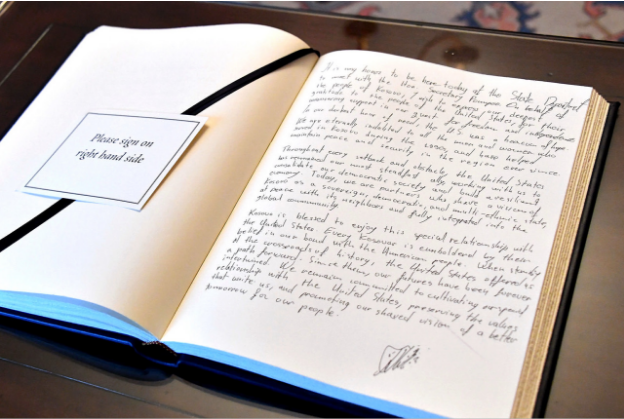 Please sign on
right hand side
It is my honor to be here today at the State Department
to meet with the Hon. Secretary Pompeo. On behalf of
the people of Kosovo, I wish to express my deepest
gratitude to the people of the United States, for their
unwavering support in our for freedom and independence
In our darkest hour of need, the U.S. was a beacon of hope
We are eternally indebted to all the men and women who
served in Kosovo during the 1990s, and have helped
maintain peace and security in the region ever since.
Throughout every setback and obstacle, the United States
has remained our most steadfast ally, working with us to
consolidate our democratic society and build a resilient
economy. Today, we are partners who share a vision of
Kosovo as a sovereign, democratic, and multi-ethnic state,
at peace with its neighbors and fully integrated into the
global community.
Kosovo is blessed to enjoy this special relationship with
the United States. Every Kosovar is emboldened by their
belief in our bond with the American people. When standing
at the crossroads of history, the United States offered us
a path forward. Since then, our futures have been forever
intertwined. We remain committed to cultivating personal
relationship with the United States, preserving the values
that unite us, and promoting our shared vision of a better
tomorrow for our people.